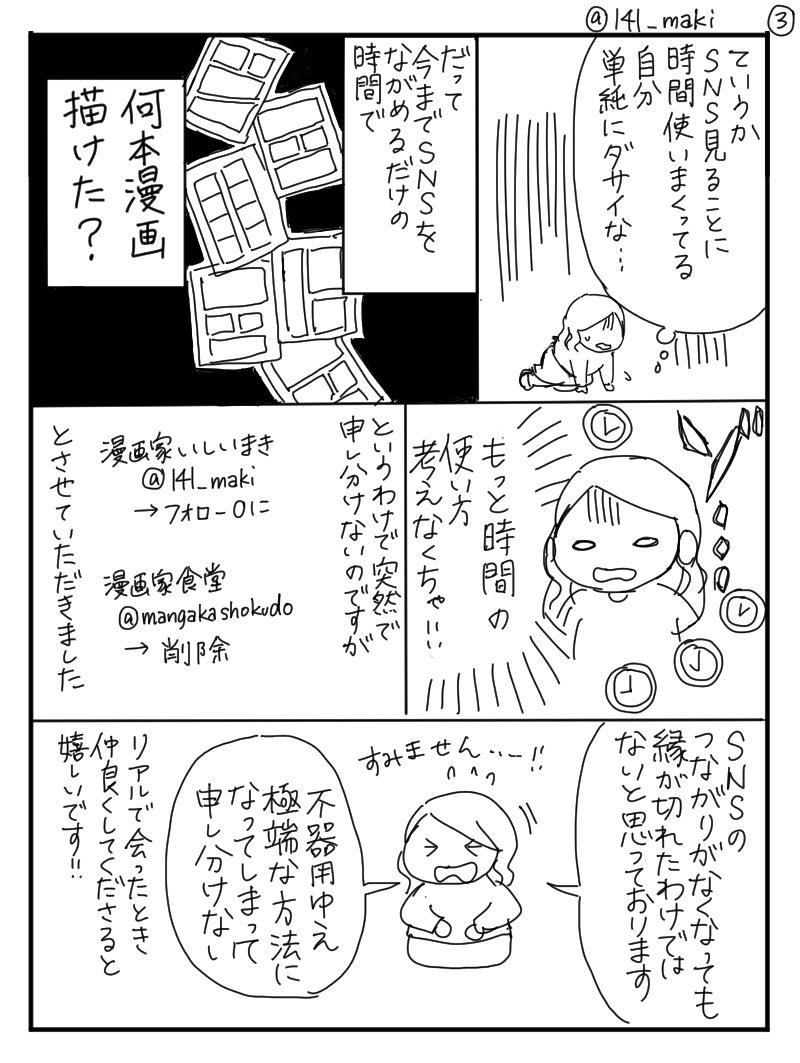 @141_maki
③
ていうか
SNS見ることに
時間使いまくってる
自分
単純にダサイな…
だって
今までSNSを
ながめるだけの
時間で
何本漫画
描けた？
もっと時間の
使い方
考えなくちゃ…
というわけで突然で
申し分けないのですが
漫画家いしいまき
@141_maki
→フォロー0に
漫画家食堂
@mangakashokudo
→削除
とさせていただきました
SNSの
つながりがなくなっても
縁が切れたわけでは
ないと思っております
すみません…ー!!
不器用ゆえ
極端な方法に
なってしまって
申し分けない
リアルで会ったとき
仲良くしてくださると
嬉しいです!!